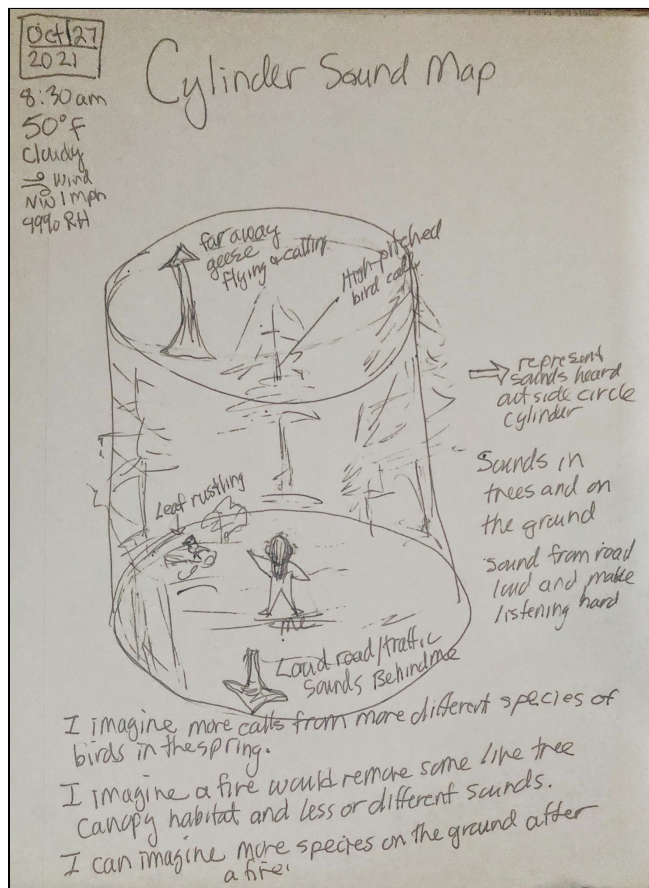 Oct 27
2021
8:30am
50°F
Cloudy
Wind
NW 1 mph
49% RH
Cylinder Sound Map
far away
geese
flying & calling
High-pitched
bird call
represent
sounds heard
outside circle
cylinder
Sounds in
trees and on
the ground
Sound from road
loud and make
listening hard
Leaf rustling
me
Loud road/traffic
sounds Behind me
I imagine more calls from more different species of
birds in the spring.
I imagine a fire would remove some live tree
canopy habitat and less or different sounds.
I can imagine more species on the ground after
a fire.